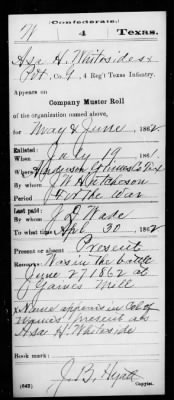 Confederate.
W 4 Texas.
Asa H. Whitesides x
Pvt, Co. G, 4 Reg't Texas Infantry.
Appears on
Company Muster Roll
of the organization named above,
for May & June, 1862.
Enlisted:
When July 19, 1861.
Where Anderson Grimes Co Tex
By whom J. W. Hutcheson
Period For the War
Last paid:
By whom J. D. Wade
To what time Apl 30, 1862
Present or absent Present
Remarks: Was in the battle
June 27, 1862 at
Gaines Mill
x Name appears in Col of
Names present as
Asa H. Whiteside
Book mark:
J. B. Hyatt
(642) Copyist.